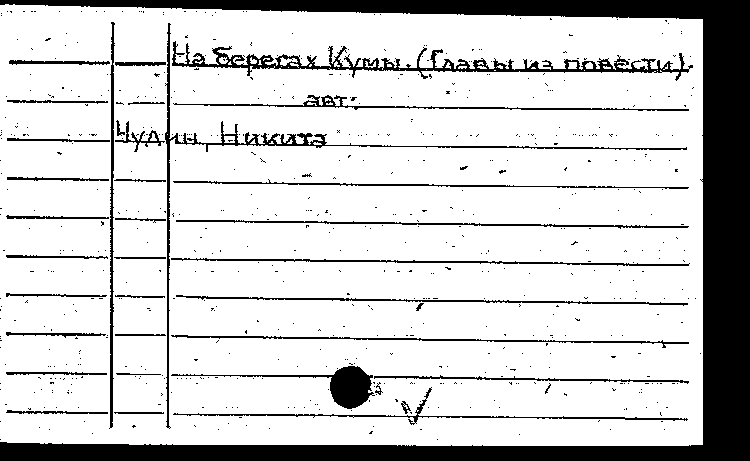 На берегах Кумы. (Главы из повести).
авт:
Чудин, Никита